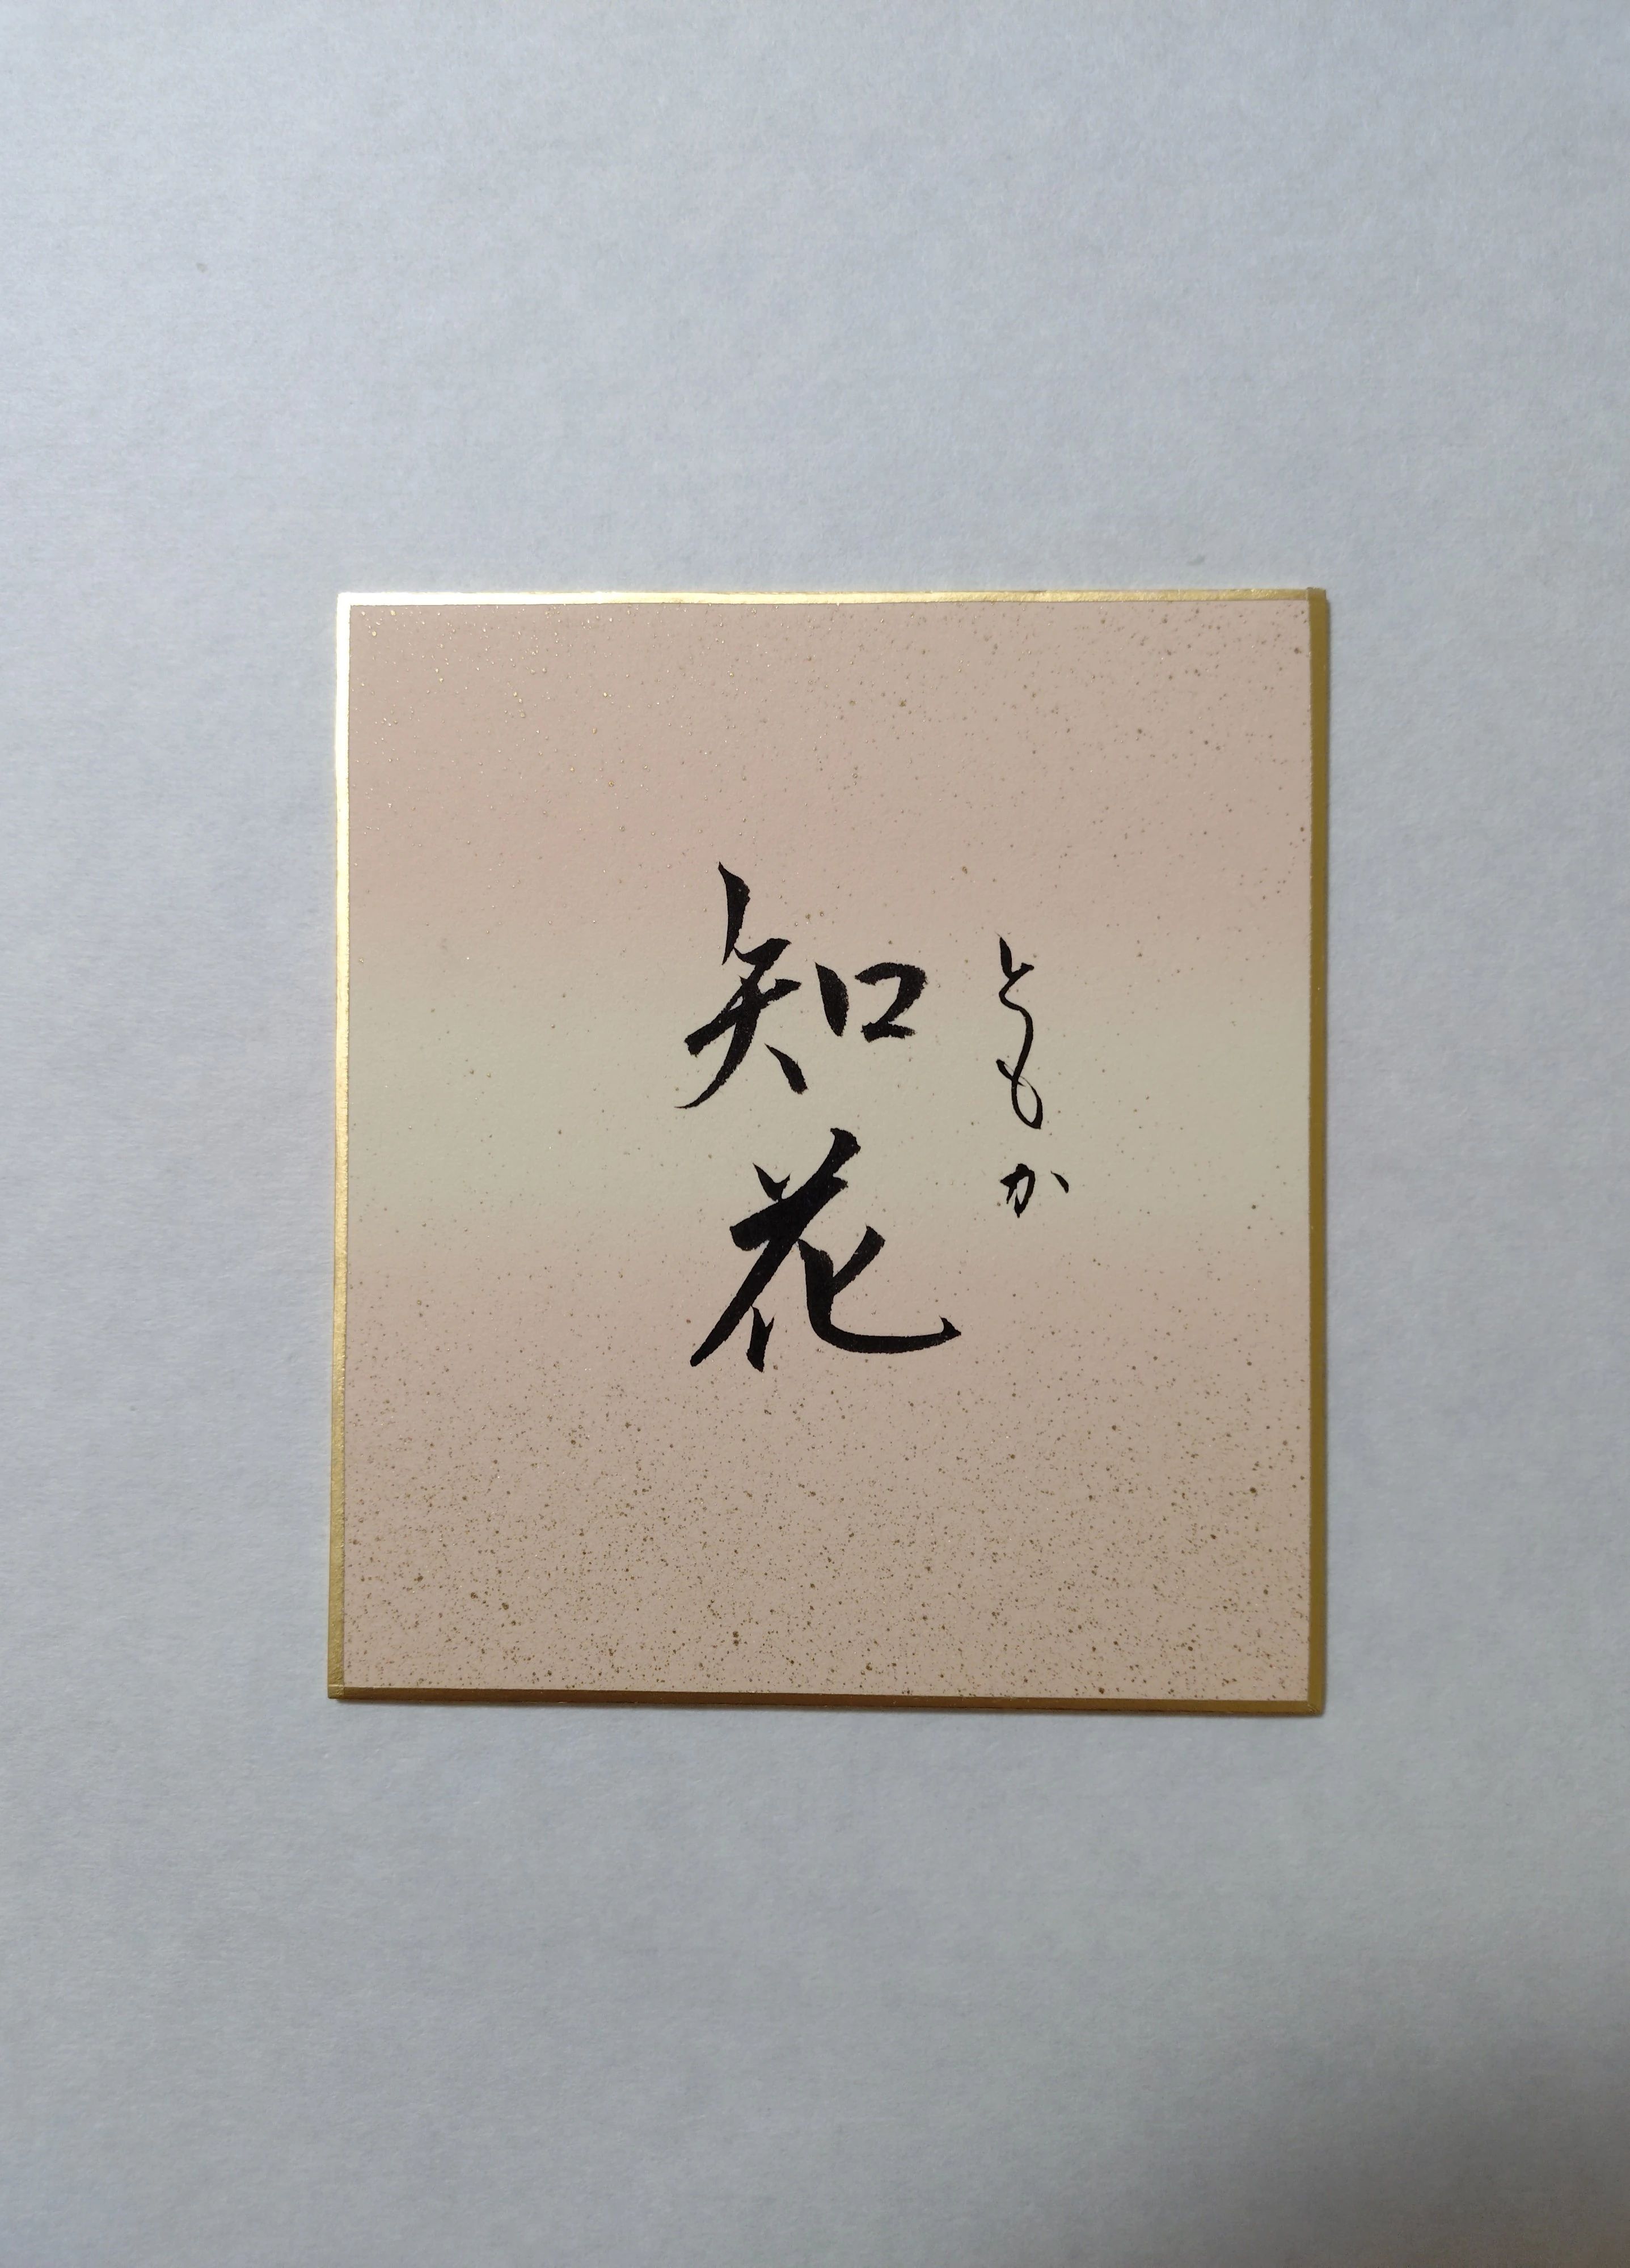 ともか
知花